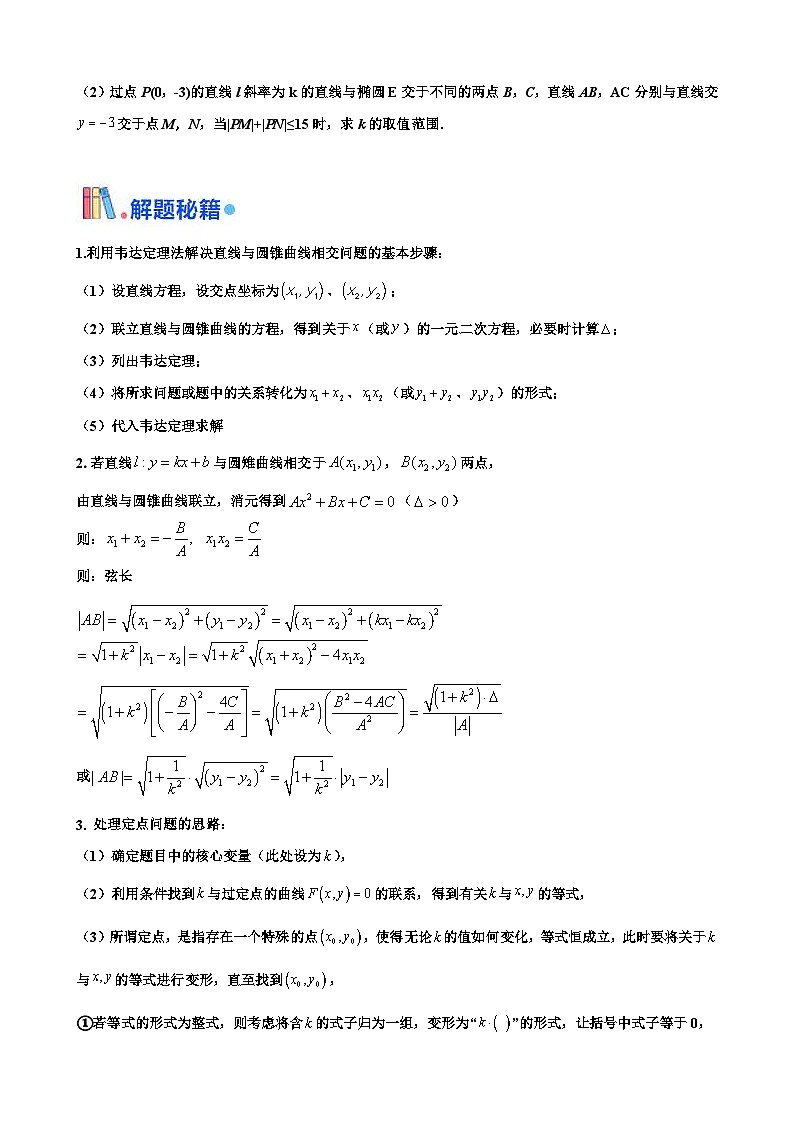 （2）过点 P(0，-3)的直线 l 斜率为 k 的直线与椭圆 E 交于不同的两点 B，C，直线 AB，AC 分别与直线交
y = −3 交于点 M，N，当|PM|+|PN|≤15 时，求 k 的取值范围．
解题秘籍
1.利用韦达定理法解决直线与圆锥曲线相交问题的基本步骤：
（1）设直线方程，设交点坐标为(x₁, y₁)、(x₂, y₂)；
（2）联立直线与圆锥曲线的方程，得到关于 x（或 y）的一元二次方程，必要时计算Δ；
（3）列出韦达定理；
（4）将所求问题或题中的关系转化为 x₁ + x₂、x₁x₂（或 y₁ + y₂、y₁y₂）的形式；
（5）代入韦达定理求解
2. 若直线 l : y = kx + b 与圆雉曲线相交于 A(x₁, y₁)，B(x₂, y₂) 两点，
由直线与圆锥曲线联立，消元得到 Ax² + Bx + C = 0（Δ > 0）
则：x₁ + x₂ = −B/A, x₁x₂ = C/A
则：弦长
|AB| = √((x₁ − x₂)² + (y₁ − y₂)²) = √((x₁ − x₂)² + (kx₁ − kx₂)²)
= √(1+k²) |x₁ − x₂| = √(1+k²) √((x₁ + x₂)² − 4x₁x₂)
= √((1+k²)[(−B/A)² − 4C/A]) = √((1+k²)((B² − 4AC)/A²)) = √((1+k²)·Δ)/|A|
或| AB |= √(1+1/k²) · √((y₁ − y₂)²) = √(1+1/k²) · |y₁ − y₂|
3. 处理定点问题的思路：
（1）确定题目中的核心变量（此处设为 k），
（2）利用条件找到 k 与过定点的曲线 F(x, y) = 0 的联系，得到有关 k 与 x, y 的等式，
（3）所谓定点，是指存在一个特殊的点(x₀, y₀)，使得无论 k 的值如何变化，等式恒成立，此时要将关于 k
与 x, y 的等式进行变形，直至找到(x₀, y₀)，
①若等式的形式为整式，则考虑将含 k 的式子归为一组，变形为“k·( )”的形式，让括号中式子等于 0，